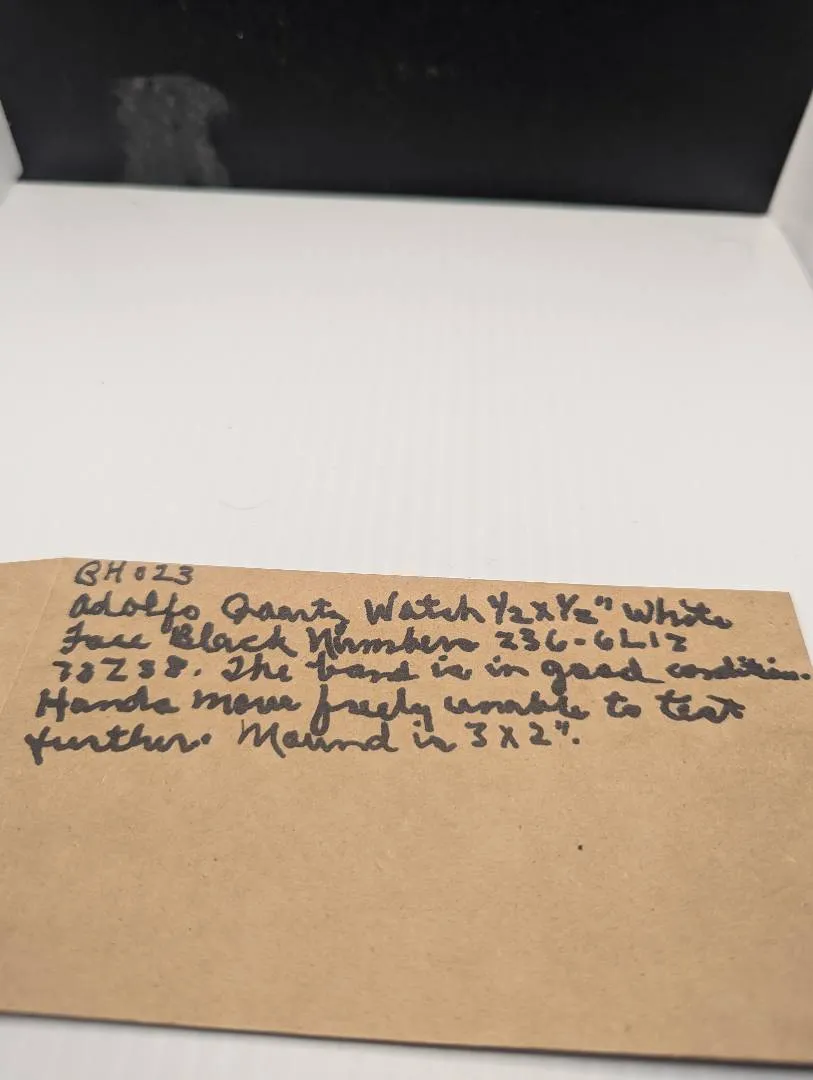 BH023
Adolfo Quartz Watch 1/2 x 1/2" White
Face Black Numbers Z36-6L12
73Z38. The band is in good condition.
Hands move freely unable to test
further. Mound is 3 X 2".